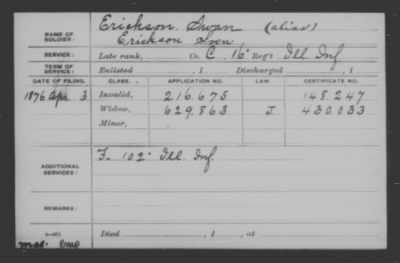 NAME OF SOLDIER: Erickson, Swan (alias)
Erickson Sven
SERVICE: Late rank, Co. C, 16" Reg't Ill. Inf.
TERM OF SERVICE: Enlisted , 1 Discharged , 1
DATE OF FILING. CLASS. APPLICATION NO. LAW. CERTIFICATE NO.
1876 Apr 3 Invalid, 216.675 148.247
Widow, 629.863 J. 430.033
Minor,
ADDITIONAL SERVICES: F- 102" Ill. Inf.
REMARKS:
Died , 1 , at